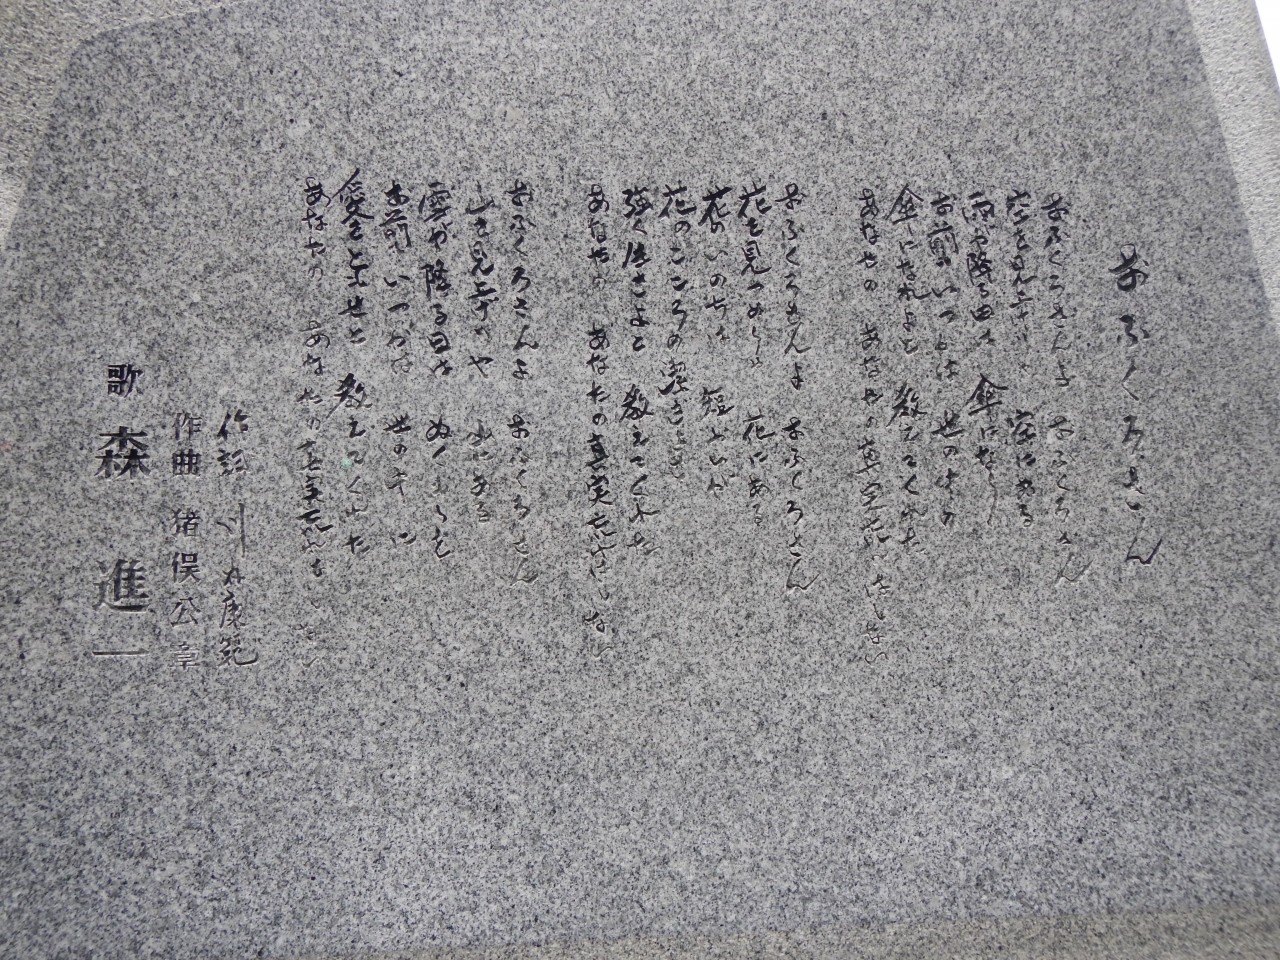 おふくろさん
おふくろさんよ おふくろさん
空を見上げりゃ 空にある
雨の降る日は 傘になり
お前もいつかは 世の中の
傘になれよと 教えてくれた
あなたの あなたの真実 忘れはしない
おふくろさんよ おふくろさん
花を見つめりゃ 花にある
花のいのちは 短いが
花のこころの 潔さ
強く生きよと 教えてくれた
あなたの あなたの真実 忘れはしない
おふくろさんよ おふくろさん
山を見上げりゃ 山にある
雪が降る日は ぬくもりを
お前もいつかは 世の中に
愛をともせと 教えてくれた
あなたの あなたの真実 忘れはしない
作詩 川内康範
作曲 猪俣公章
歌 森 進一